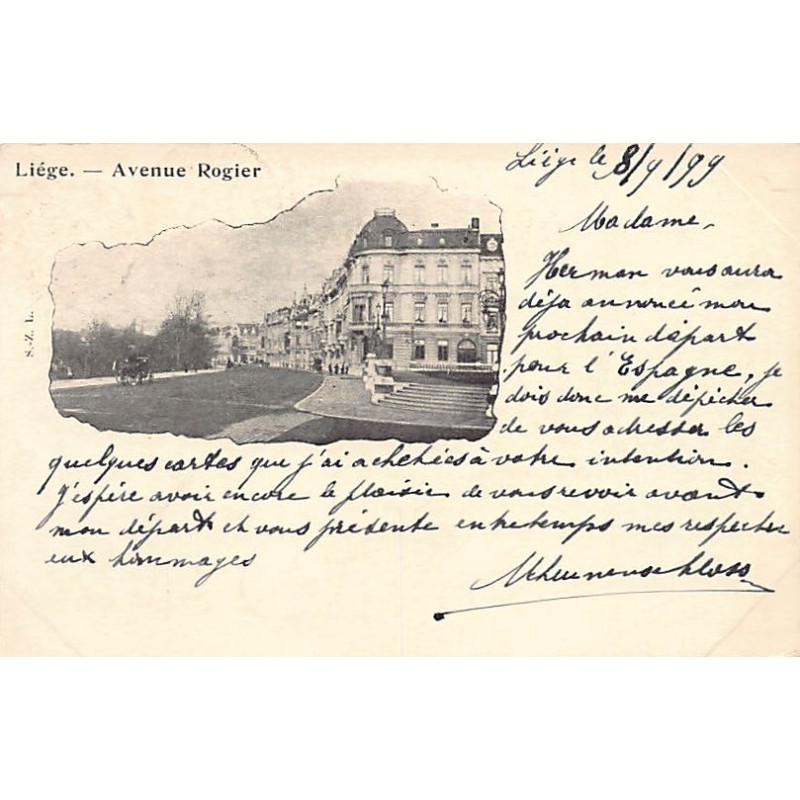 Liége. — Avenue Rogier
S.-Z. L.
Liége le 8/9/99
Madame,
Herman vous aura
déja annoncé mon
prochain départ
pour l'Espagne, je
dois donc me dépécher
de vous adresser les
quelques cartes que j'ai achetées à votre intention.
J'espère avoir encore le plaisir de vous revoir avant
mon départ et vous présente entretemps mes respectu
eux hommages